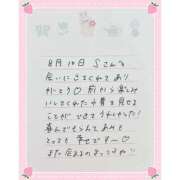 8月10日 Sさん
会いにきてくれてあり
がとう♡ 前から楽しみ
にしてくれた
ことができてうれしかった!
喜んでもらえてあれも
とっても 幸せです〜♡
また会えるのまってるね!!